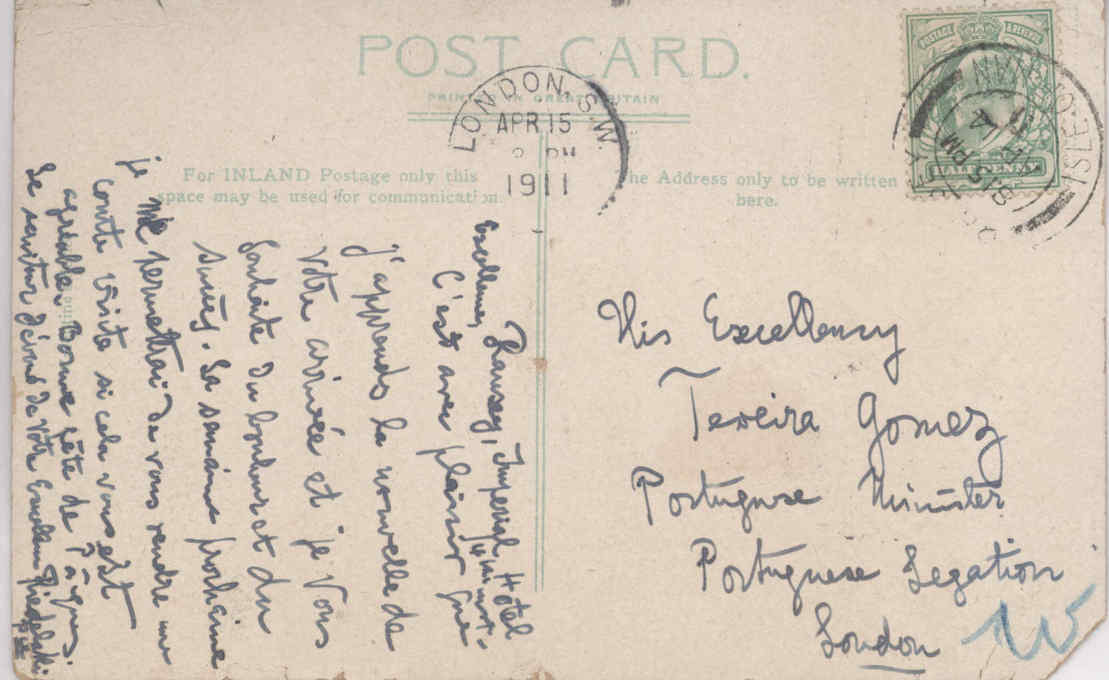 POST CARD.
PRINTED IN GREAT BRITAIN
LONDON, S.W.
APR 15
8 PM
1911
POSTAGE & REVENUE
ISLE OF MAN
For INLAND Postage only this
space may be used for communication.
The Address only to be written
here.
Ramsey, Imperial Hotel
Excellence,
C'est avec plaisir que
j'apprends la nouvelle de
votre arrivée et je vous
souhaite du bonheur et du
succès. La semaine prochaine
je me permettrai de vous rendre une
courte visite si cela vous est
agréable. Bonne fête de Pâques.
Le serviteur dévoué de Votre Excellence
His Excellency
Texeira Gomez
Portuguese Minister
Portuguese Legation
London
W